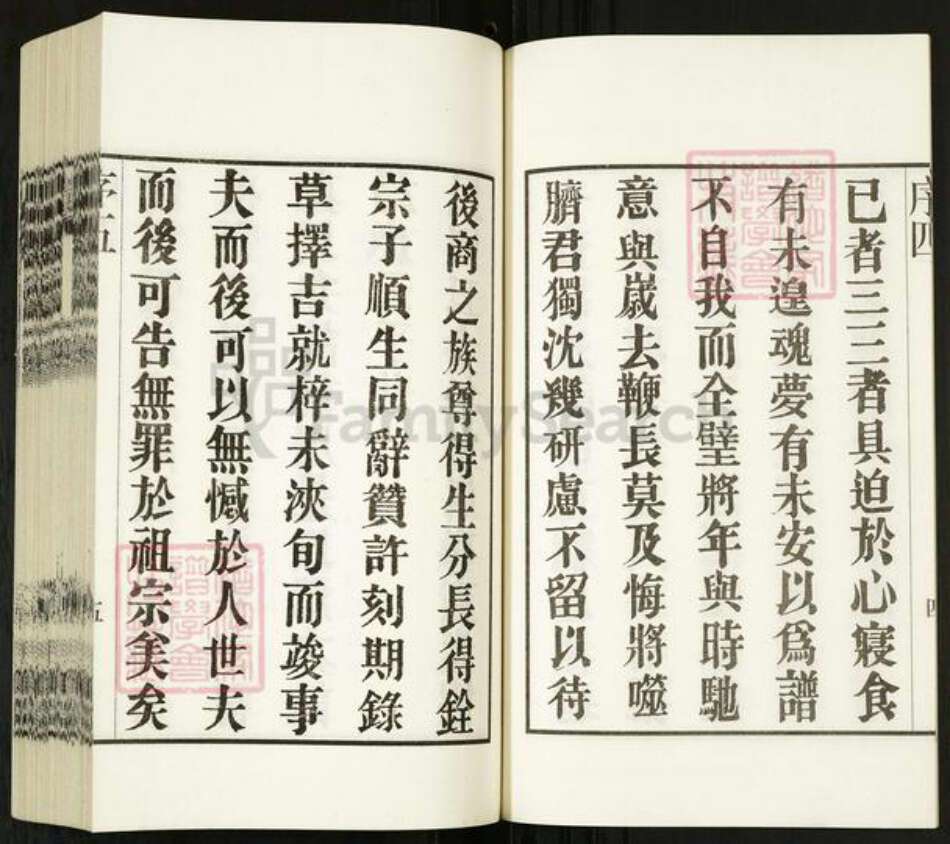 序四
已者三三者具迫於心寢食
有未遑魂夢有未安以爲譜
不自我而全璧將年與時馳
意與歲去鞭長莫及悔將噬
臍君獨沈幾研慮不留以待
四
後商之族尊得生分長得銓
宗子順生同辭贊許刻期錄
草擇吉就梓未浹旬而竣事
夫而後可以無憾於人世夫
而後可告無罪於祖宗矣矣
序五
五
FamilySearch